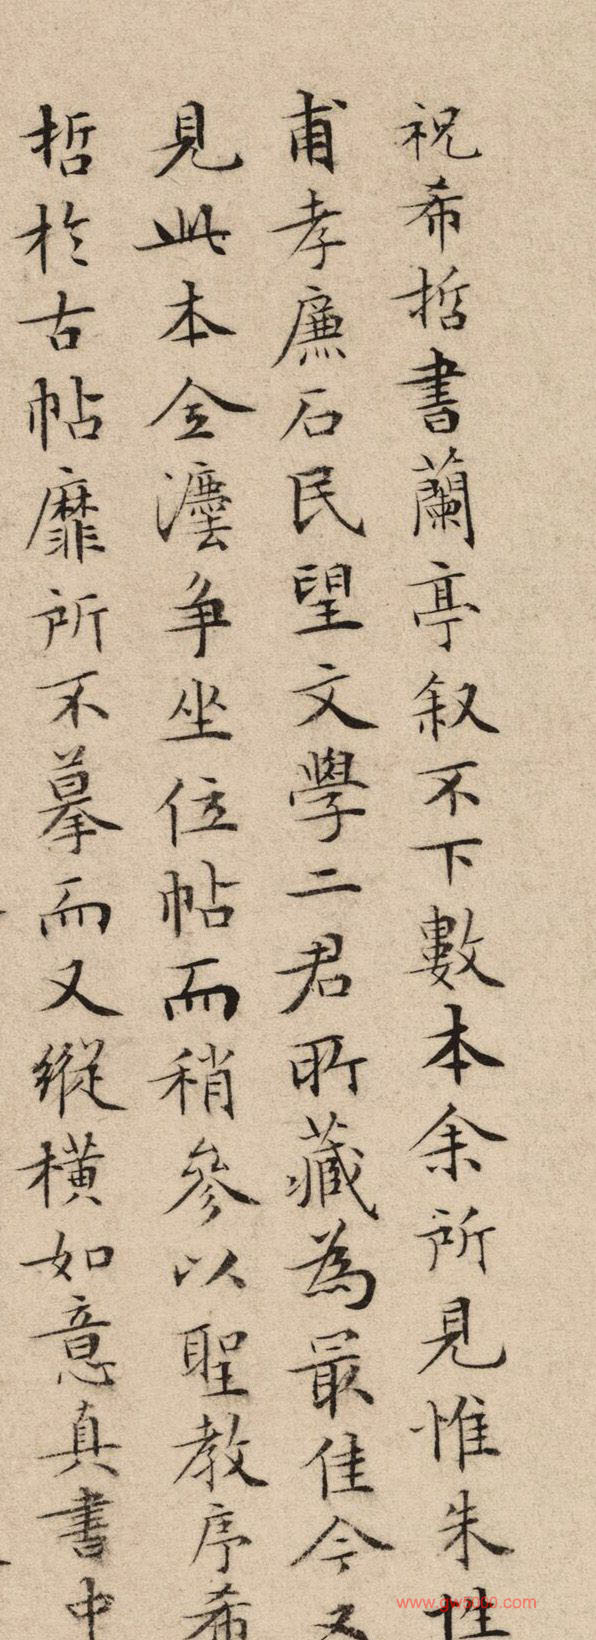 祝希哲書蘭亭叙不下數本余所見惟朱性
甫孝廉石民望文學二君所藏為最佳今又
見此本全灋争坐位帖而稍參以聖教序希
哲於古帖靡所不摹而又縱横如意真書中
www.gw5000.com